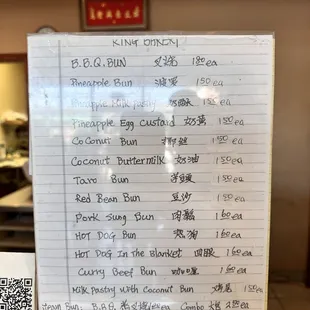 KING BAKERY
B.B.Q. BUN 叉燒 180ea
Pineapple Bun 菠蘿 150ea
Pineapple Milk Pasty 奶
Pineapple Egg Custard 奶黃 1
Coconut Bun 椰
Coconut Buttermilk 奶油 150ea
Taro Bun 150ea
Red Bean Bun 豆沙 150ea
Pork Sung Bun 肉鬆 160ea
HOT DOG Bun 160ea
HOT DOG In the Blanket 160ea
Curry Beef Bun 咖喱 160ea
Milk Pastry with Coconut Bun
Steam Bun: B.B.Q. ea Combo ea